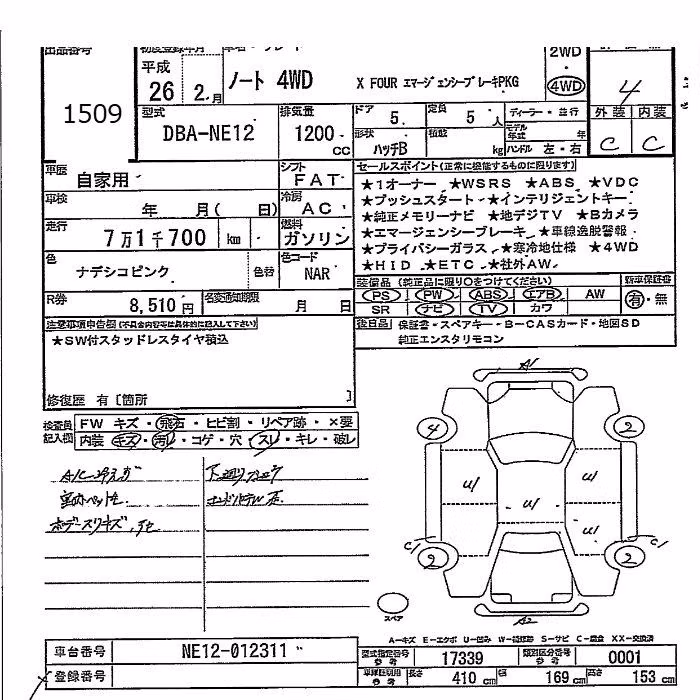 出品番号
初度登録年月
1509
平成
26 2.月
ノート 4WD
X FOUR エマージェンシーブレーキPKG
2WD
4WD
4
型式
DBA-NE12
排気量
1200 CC
ドア 5.
定員 5 人
ディーラー・並行
モデル年式 年
外装 内装
C C
形状
ハッチB
積載 kg
ハンドル 左・右
車歴
自家用
シフト
FAT
車検
年 月( 日)
冷房
AC
走行
7万1千700 km
燃料
ガソリン
色
ナデシコピンク
色替
色コード
NAR
R券
8,510円
名変通知期限
月 日
セールスポイント(正常に機能するものに限ります)
★1オーナー ★WSRS ★ABS ★VDC
★プッシュスタート ★インテリジェントキー
★純正メモリーナビ ★地デジTV ★Bカメラ
★エマージェンシーブレーキ ★車線逸脱警報
★プライバシーガラス ★寒冷地仕様 ★4WD
★HID ★ETC ★社外AW
装備品 (純正品に限り○をつけてください)
新車保証書
PS PW ABS エアB AW
有・無
SR ナビ TV カワ
後日品 保証書・スペアキー・B-CASカード・地図SD
純正エンスタリモコン
注意事項申告欄(不具合内容等は具体的に記入して下さい)
★SW付スタッドレスタイヤ積込
修復歴 有〔箇所 〕
検査員記入欄
FW キズ・飛石・ヒビ割・リペア跡・×要
内装 キズ・汚れ・コゲ・穴・スレ・キレ・破レ
A1
4
2
U/
U/
U/
U/
C1
C1
2
2
スペア
A2
A-キズ E-エクボ U-凹み W-補修跡 S-サビ C-腐食 XX-交換済
車台番号
NE12-012311
型式指定番号 参考
17339
類別区分番号 参考
0001
登録番号
長さ 410 cm
幅 169 cm
高さ 153 cm